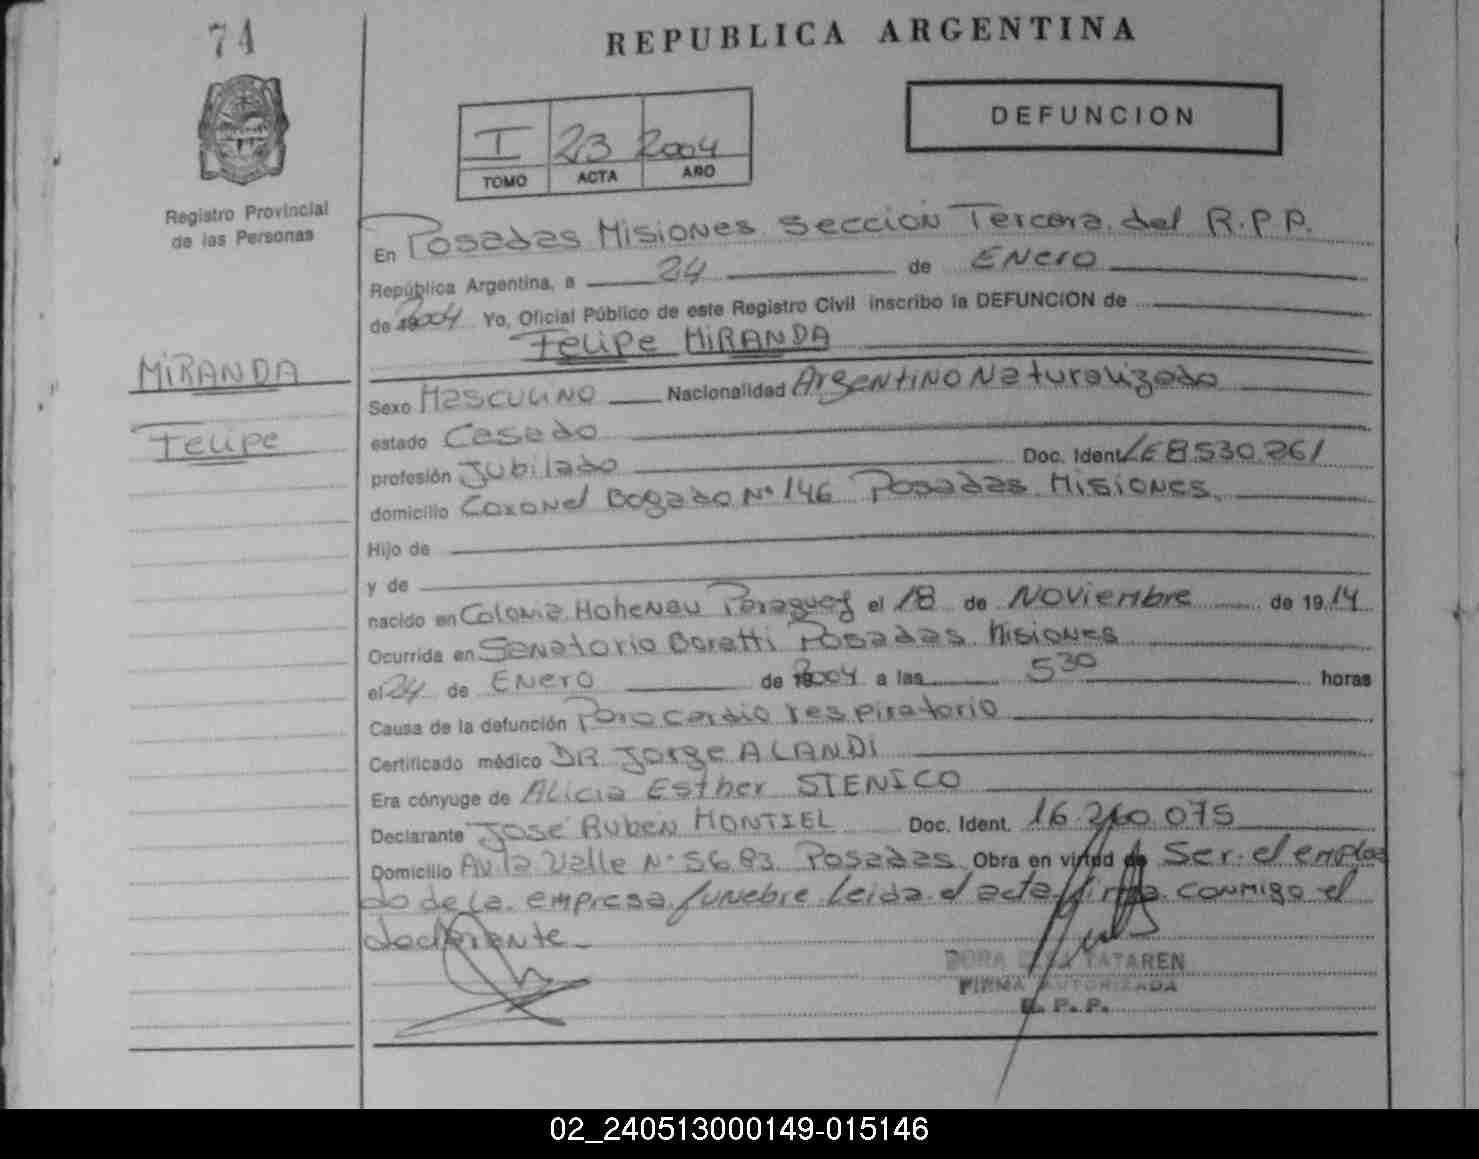 74
REPUBLICA ARGENTINA
DEFUNCION
I 23 2004
TOMO ACTA AÑO
Registro Provincial
de las Personas
MIRANDA
Felipe
En Posadas Misiones Sección Tercera del R.P.P.
República Argentina, a 24 de Enero
de 2004 Yo, Oficial Público de este Registro Civil inscribo la DEFUNCION de
Felipe MIRANDA
Sexo Masculino Nacionalidad Argentino Naturalizado
estado Casado
profesión Jubilado Doc. Ident. LE 8530261
domicilio Coronel Bogado N° 146 Posadas Misiones
Hijo de
y de
nacido en Colonia Hohenau Paraguay el 18 de Noviembre de 1914
Ocurrida en Sanatorio Boratti Posadas Misiones
el 24 de Enero de 2004 a las 530 horas
Causa de la defunción Paro cardio respiratorio
Certificado médico DR. Jorge ALANDI
Era cónyuge de Alicia Esther STENICO
Declarante José Ruben MONTIEL Doc. Ident. 16 260 075
Domicilio Av. la Valle N° 5683 Posadas Obra en virtud de Ser el emplea
do de la empresa funebre Leida el acta firma conmigo el
declarante
DORA TATAREN
FIRMA AUTORIZADA
R. P. P.
02_240513000149-015146